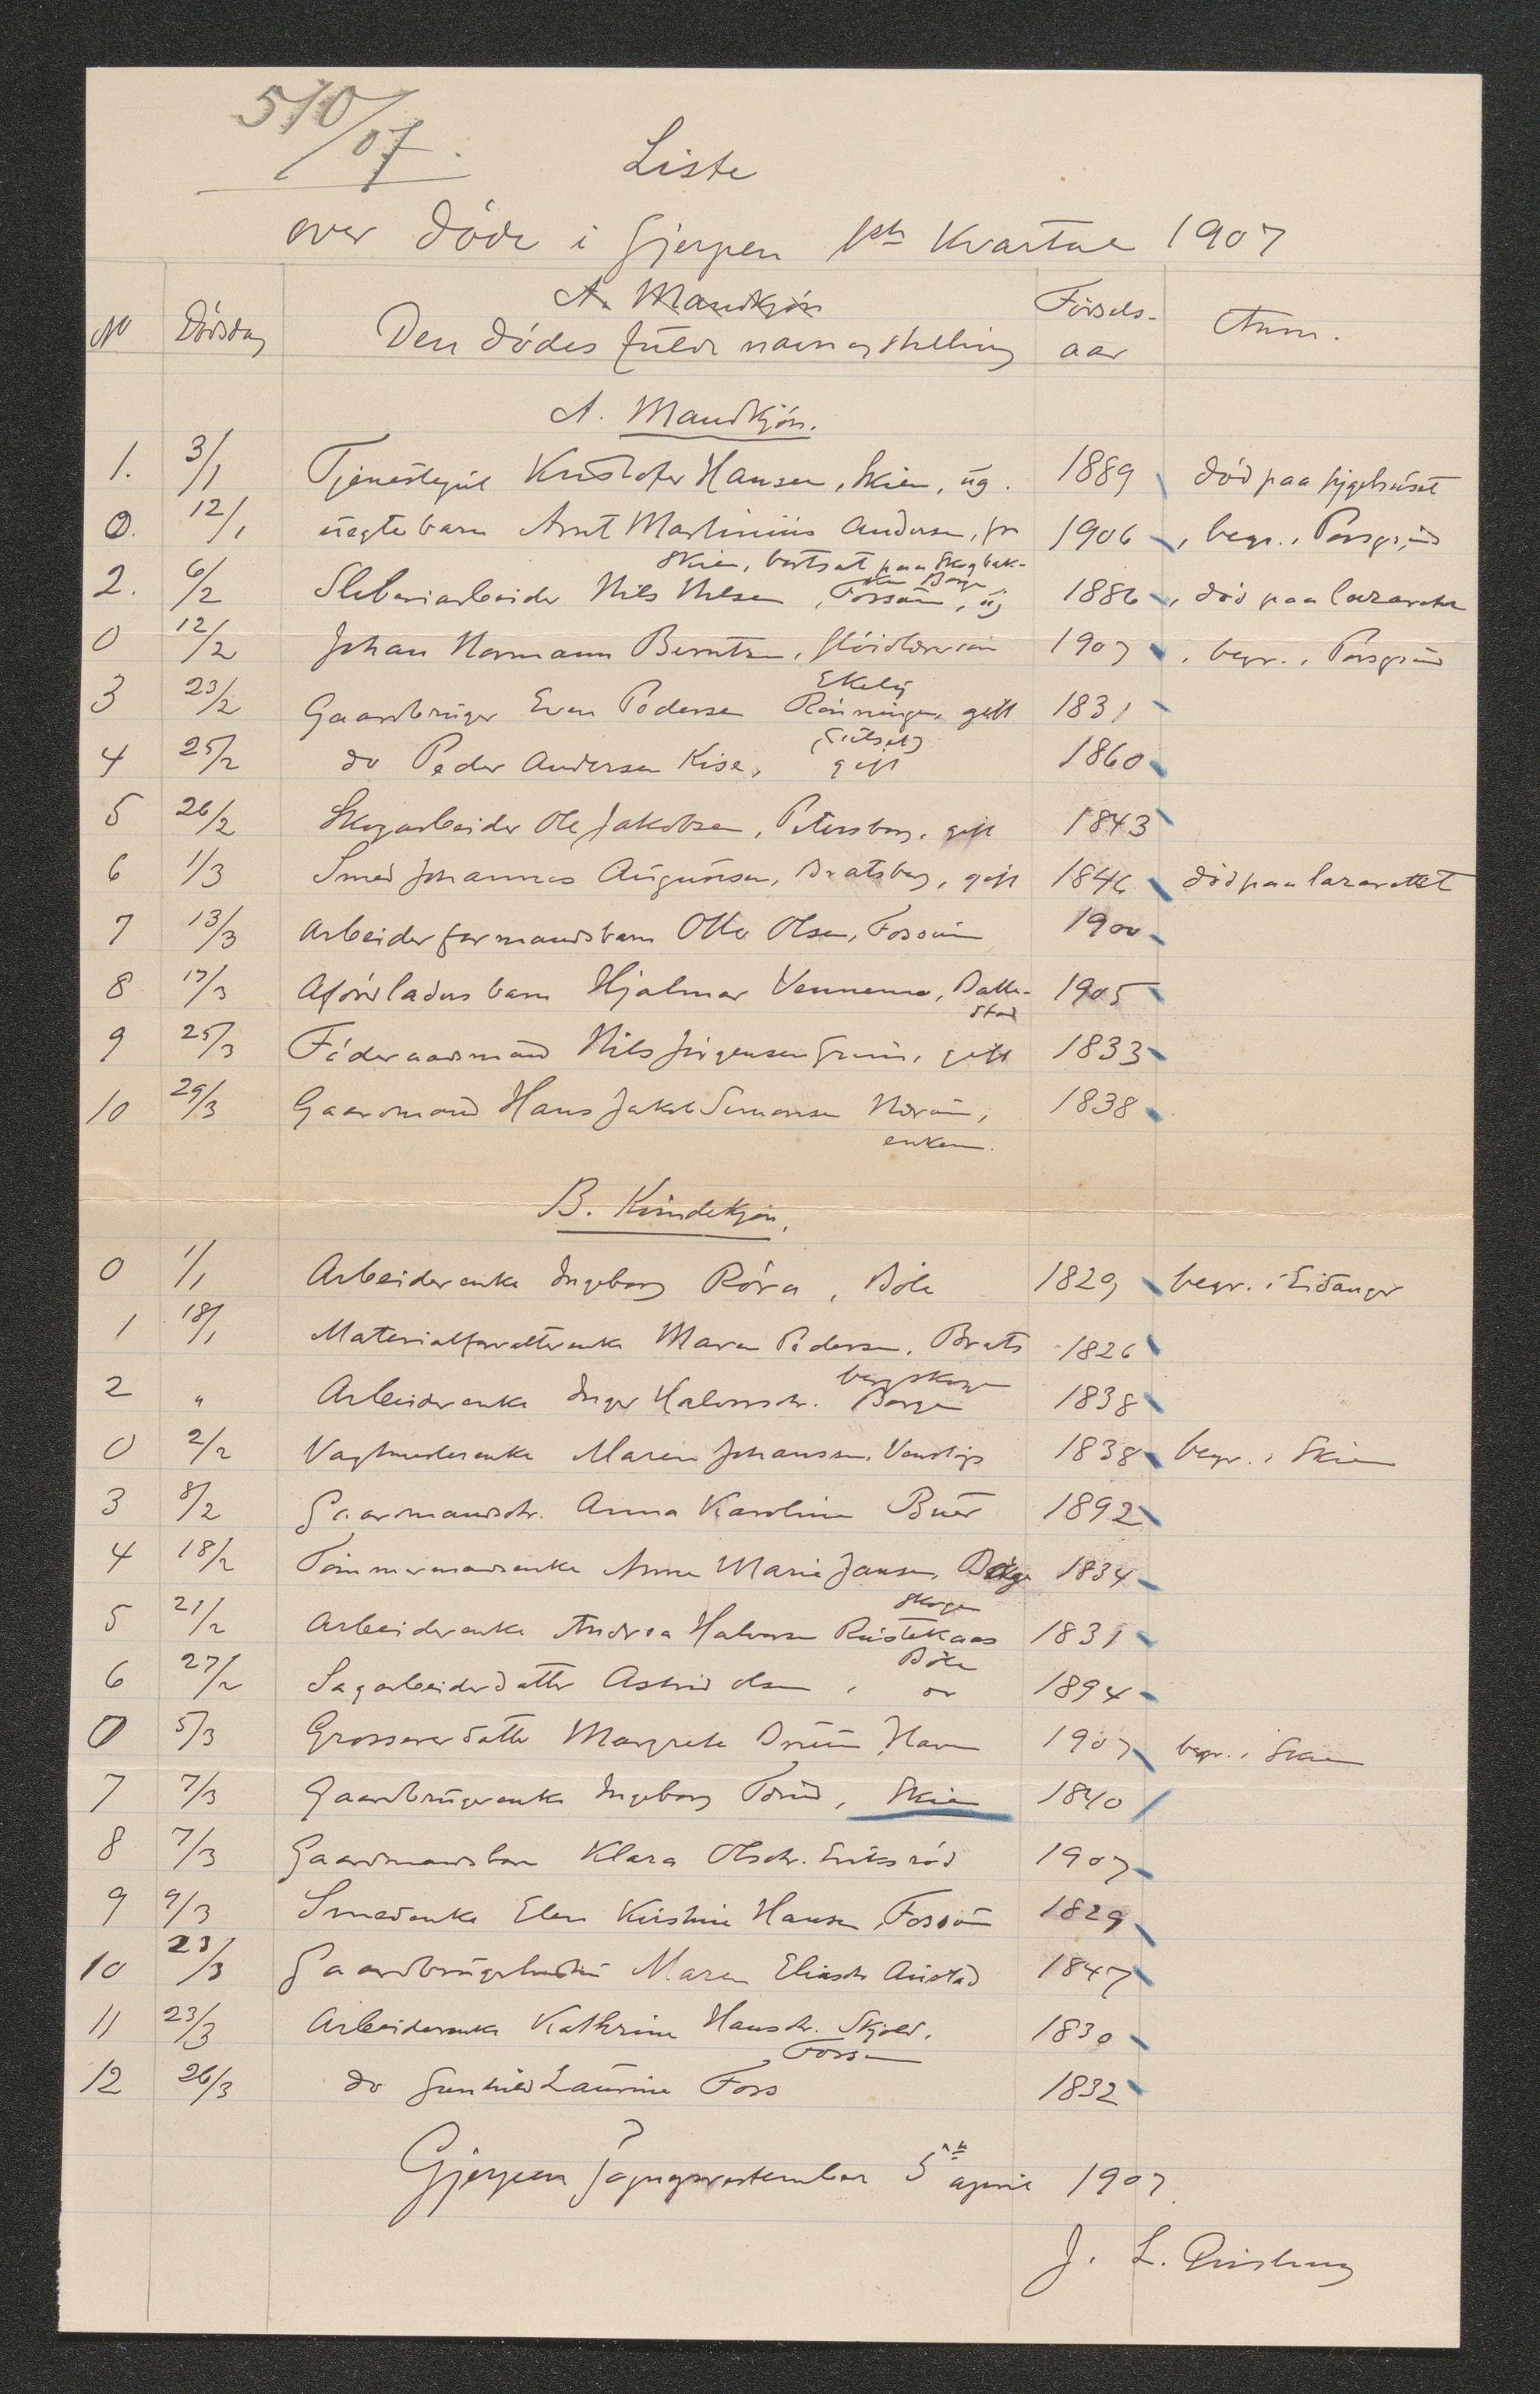 510/07.
Liste
over døde i Gjerpen 1ste Kvartal 1907
A. Mandkjøn
No Dødsdag Den dødes fulde navn og stilling Fødsels-aar Anm.
A. Mandkjøn.
1. 3/1 Tjenestegut Kristofer Hansen, Skien, ug. 1889 død paa sygehuset
0. 12/1 uegte barn Arnt Martinius Andersen, fra 1906, begr. i Porsgrund
Skien, bortsat paa Skogbak-
ken Borge
2. 6/2 Sliberiarbeider Nils Nilsen, Fossum, ug 1886, død paa lazarettet
0 12/2 Johan Normann Berntsen, 1907, begr. i Porsgrund
Ekely
3 23/2 Gaardbruger Even Pedersen Rønningen, gift 1831
4 25/2 do Peder Andersen Kise, gift 1860
5 26/2 Skogarbeider Ole Jakobsen, Petersborg, gift 1843
6 1/3 Smed Johannes Augunsen, Bratsberg, gift 1846 død paa lazarettet
7 13/3 Arbeiderformandsbarn Otto Olsen, Fossum 1900
8 17/3 barn Hjalmar Vennemo, Balle-
stad 1905
9 25/3 Føderaadsmand Nils Jørgensen Grini, gift 1833
10 29/3 Gaardmand Hans Jakob Simonsen Norum, 1838
enkem.
B. Kvindekjøn.
0 1/1 Arbeiderenke Ingeborg Røra, Bøle 1829 begr. i Eidanger
1 18/1 Materialforvalterenke Maren Pedersen, Brats 1826
bergskogen
2 " Arbeiderenke Inger Halvorsdtr. Borge 1838
0 2/2 Vagtmesterenke Maren Johansen, 1838 begr. i Skien
3 8/2 Gaardmandsdtr. Anna Karoline Buer 1892
4 18/2 Tømmermandsenke Anne Marie Jansen, Bølge 1834
skogen
5 21/2 Arbeiderenke Andrea Halvorsen Rustekaas 1831
Bøle
6 27/2 Sagarbeiderdatter Astrid Olsen, do 1894
0 5/3 Grossererdatter Margrete Havn 1907 begr. i Skien
7 7/3 Gaardbrugerenke Ingeborg Forud, Skien 1840
8 7/3 Gaardmandsbarn Klara Olsdtr. Eriksrød 1907
9 9/3 Smedenke Elen Kirstine Hansen, Fossum 1829
10 23/3 Gaardbrugerhustru Maren Eliasdtr Austad 1847
11 23/3 Arbeiderenke Kathrine Hansdtr. Skjold, 1830
Fossum
12 26/3 do Gunhild Laurine Foss 1832
Gjerpen 5te april 1907.
J. L. Quisling